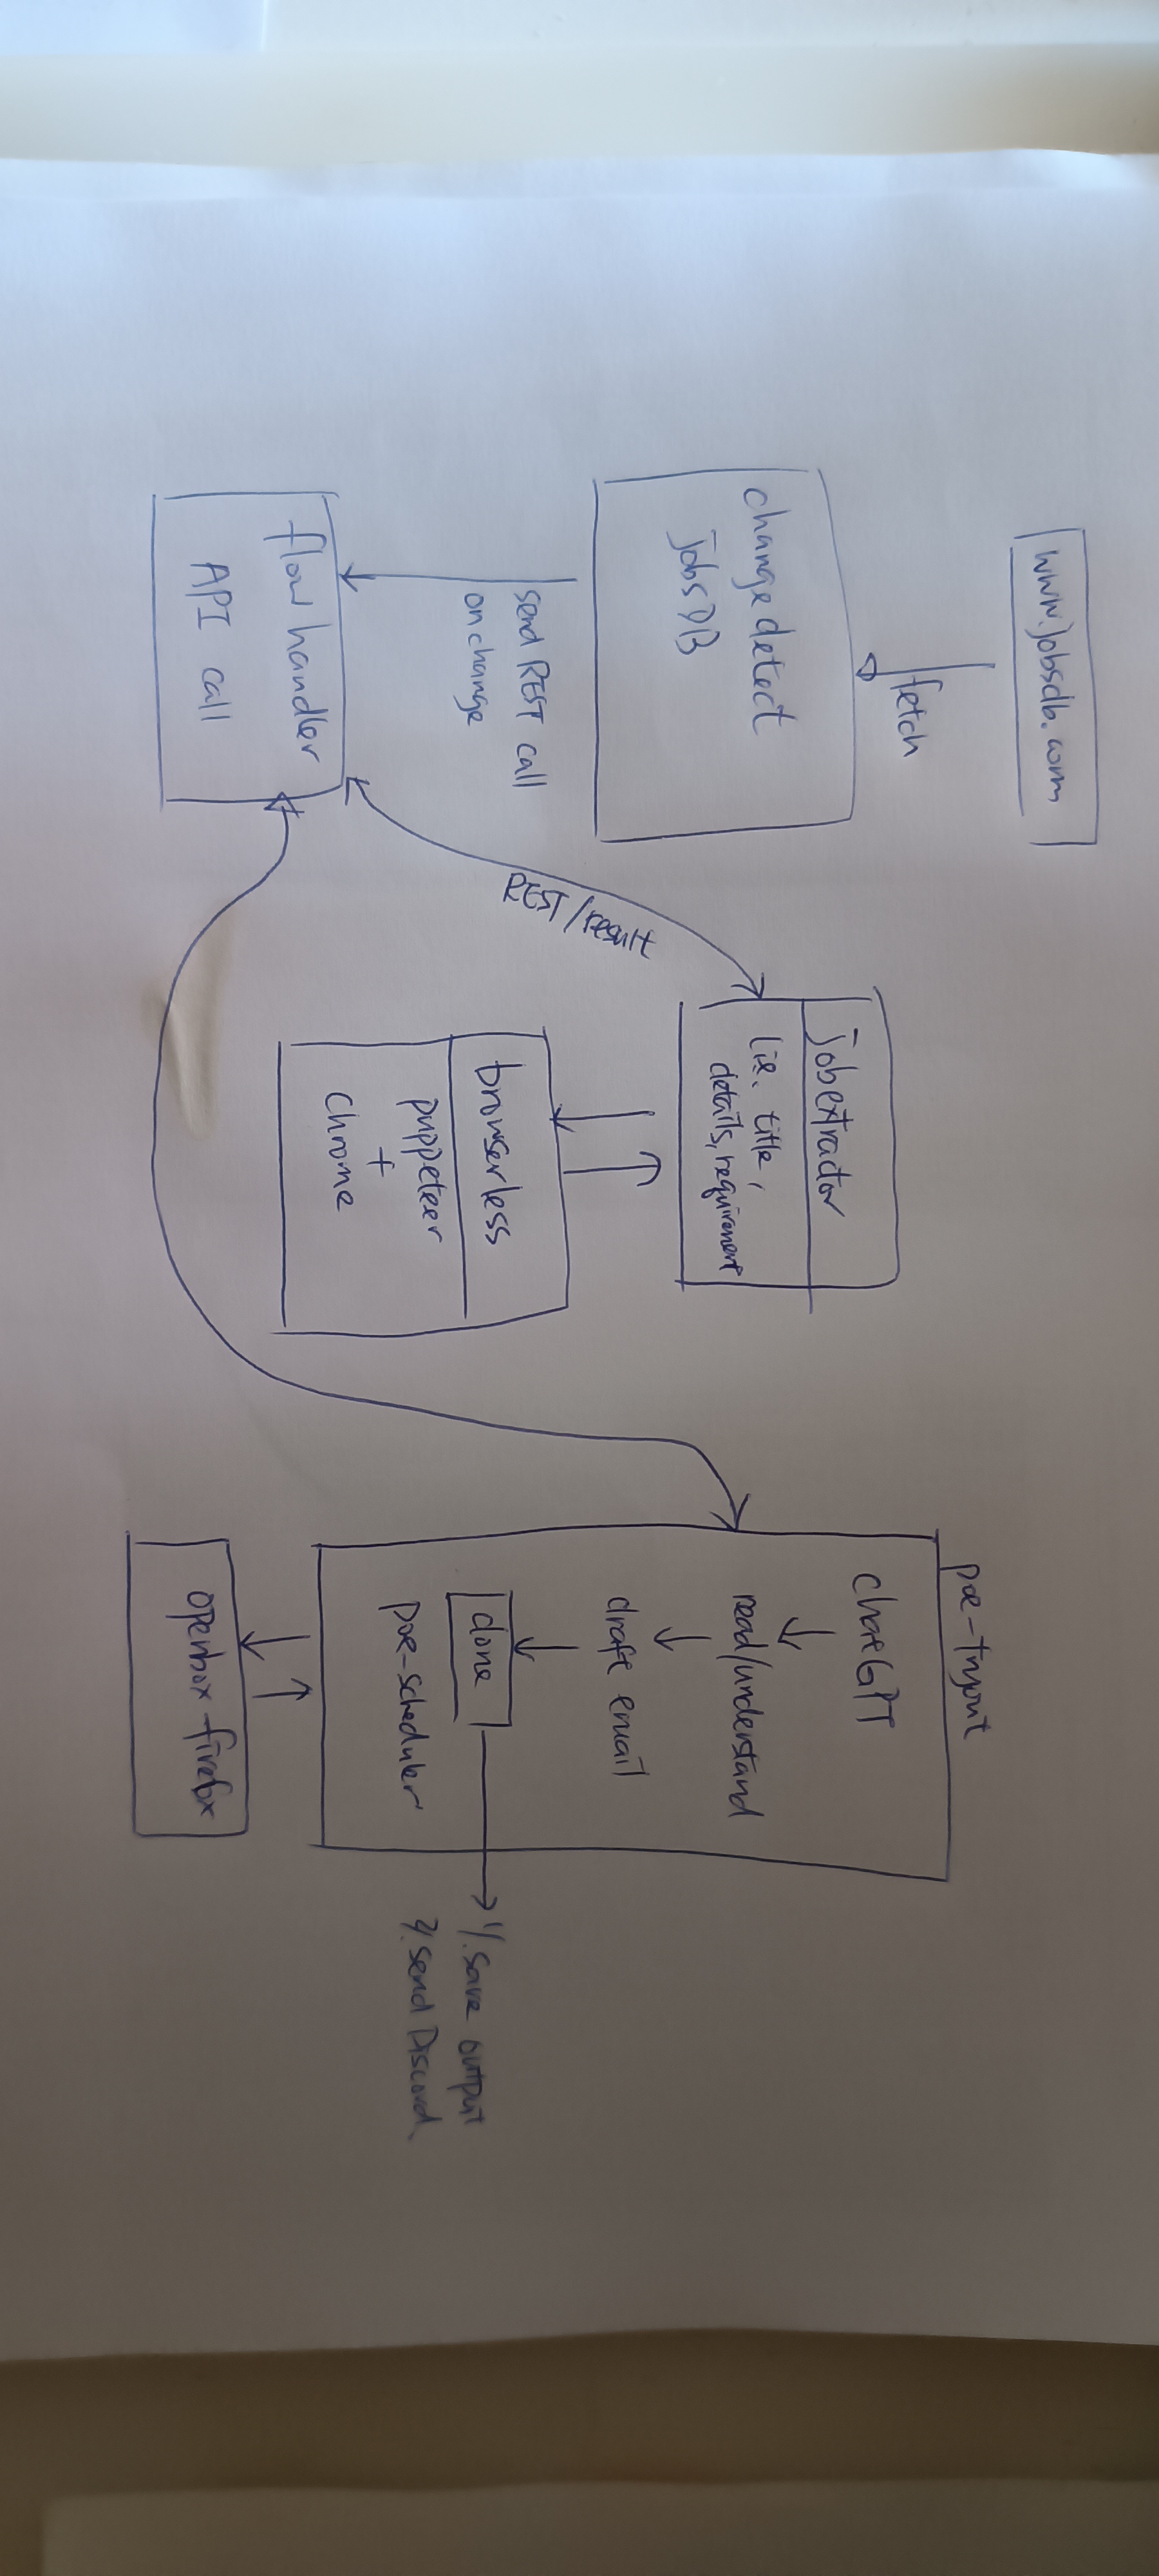 www.jobsdb.com
fetch
change detect
jobsDB
send REST call
on change
flow handler
API call
REST/result
jobextractor
(ie. title,
details, requirement
browserless
puppeteer
+
chrome
poe-tryout
chatGPT
read/understand
draft email
done
poe-scheduler
1/. save output
2/. send Discord.
openbox firefox